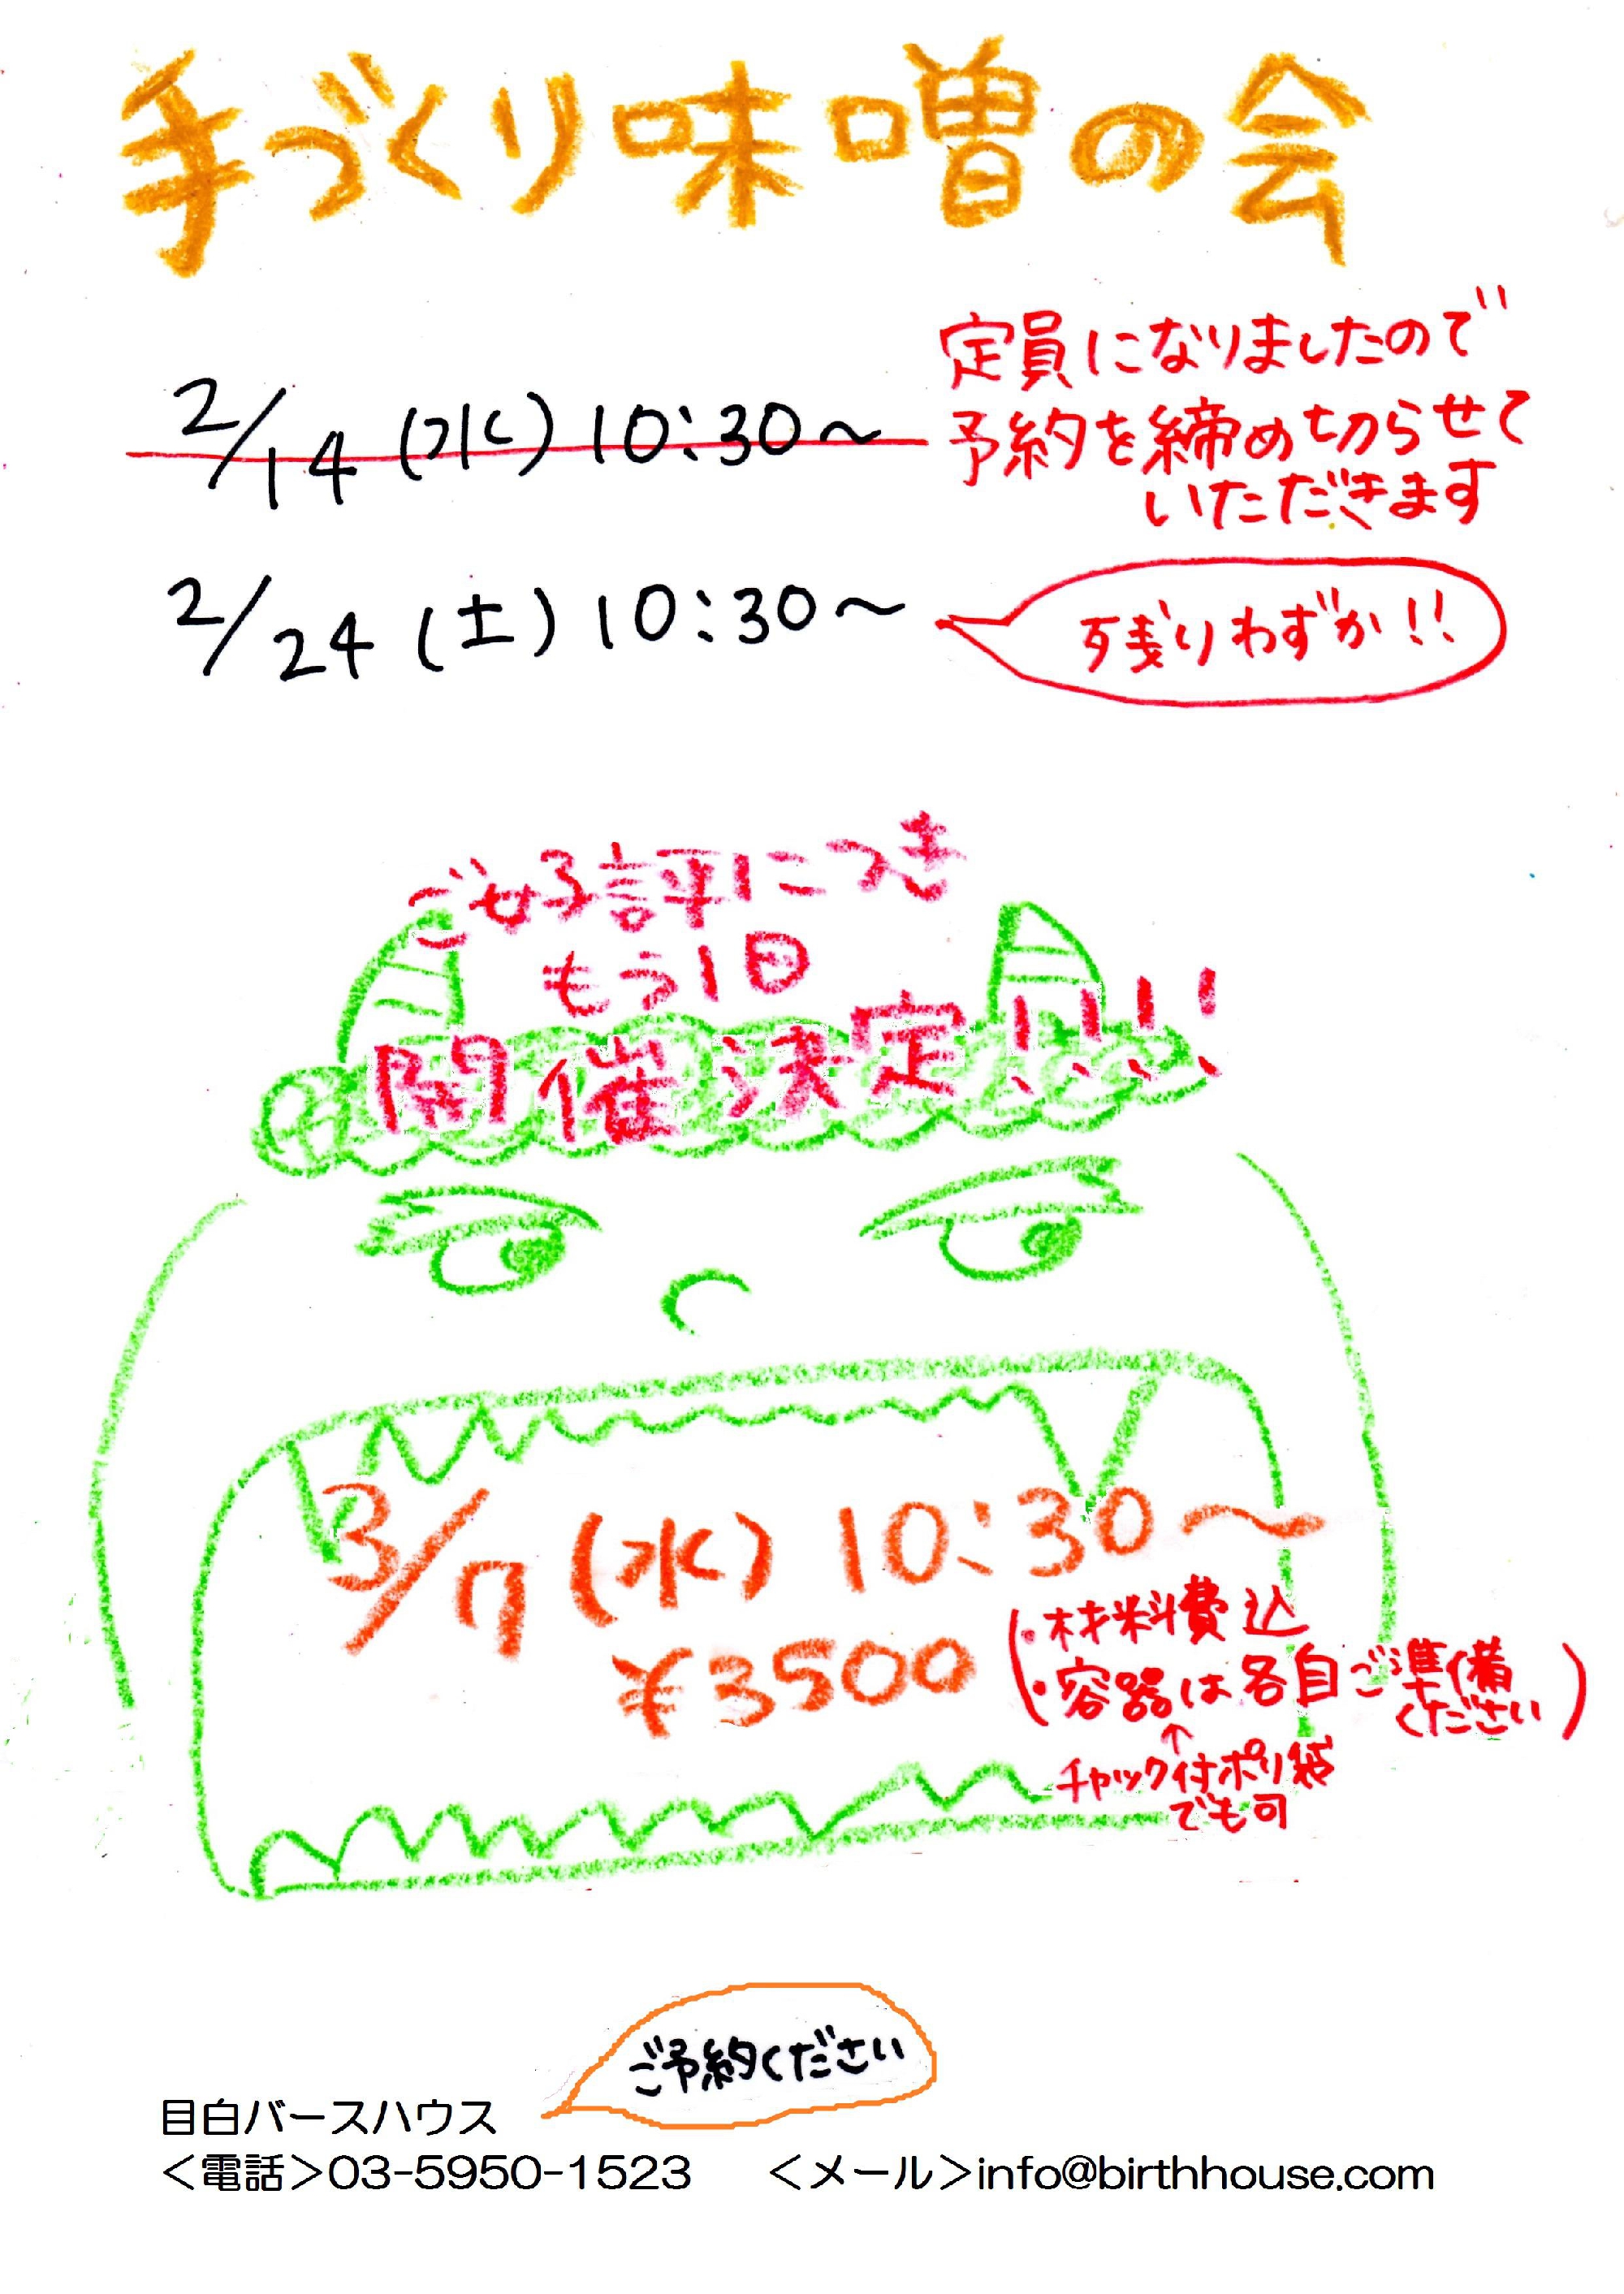 手づくり味噌の会
2/14 (水) 10:30~
定員になりましたので
予約を締め切らせて
いただきます
2/24 (土) 10:30~
残りわずか!!
ご好評につき
もう1日
開催決定!!!!
3/7 (水) 10:30~
¥3500
(・材料費込
・容器は各自ご準備
ください)
↑
チャック付ポリ袋
でも可
ご予約ください
目白バースハウス
<電話>03-5950-1523 <メール>info@birthhouse.com